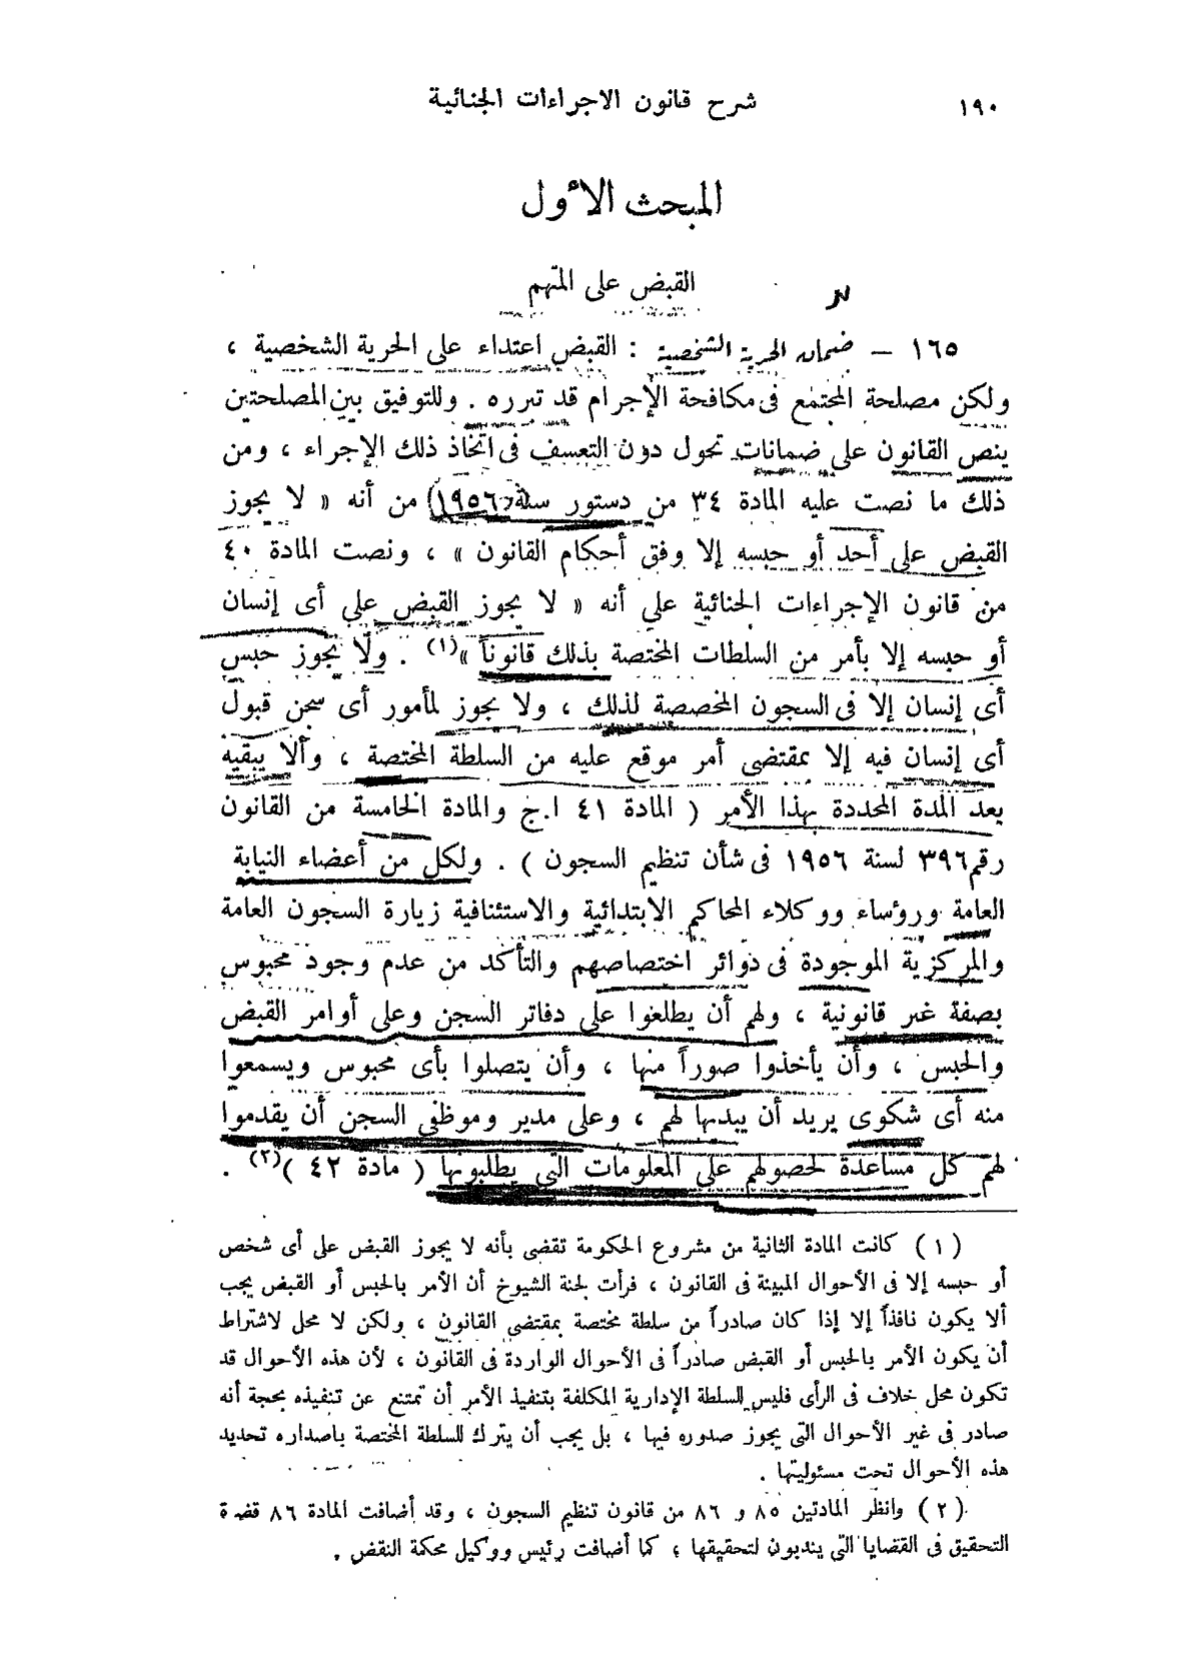 ١٩٠
شرح قانون الاجراءات الجنائية
المبحث الأول
القبض على المتهم
١٦٥ – ضمان الحرية الشخصية : القبض اعتداء على الحرية الشخصية ،
ولكن مصلحة المجتمع فى مكافحة الإجرام قد تبرره . وللتوفيق بين المصلحتين
ينص القانون على ضمانات تحول دون التعسف فى اتخاذ ذلك الإجراء ، ومن
ذلك ما نصت عليه المادة ٣٤ من دستور سنة (١٩٥٦) من أنه « لا يجوز
القبض على أحد أو حبسه إلا وفق أحكام القانون » ، ونصت المادة ٤٠
من قانون الإجراءات الجنائية على أنه « لا يجوز القبض على أى إنسان
أو حبسه إلا بأمر من السلطات المختصة بذلك قانوناً »(١) . ولا يجوز حبس
أى إنسان إلا فى السجون المخصصة لذلك ، ولا يجوز لمأمور أى سجن قبول
أى إنسان فيه إلا بمقتضى أمر موقع عليه من السلطة المختصة ، وألا يبقيه
بعد المدة المحددة بهذا الأمر ( المادة ٤١ ا.ج والمادة الخامسة من القانون
رقم ٣٩٦ لسنة ١٩٥٦ فى شأن تنظيم السجون ) . ولكل من أعضاء النيابة
العامة ورؤساء ووكلاء المحاكم الابتدائية والاستئنافية زيارة السجون العامة
والمركزية الموجودة فى دوائر اختصاصهم والتأكد من عدم وجود محبوس
بصفة غير قانونية ، ولهم أن يطلعوا على دفاتر السجن وعلى أوامر القبض
والحبس ، وأن يأخذوا صوراً منها ، وأن يتصلوا بأى محبوس ويسمعوا
منه أى شكوى يريد أن يبديها لهم ، وعلى مدير وموظفى السجن أن يقدموا
لهم كل مساعدة لحصولهم على المعلومات التى يطلبونها ( مادة ٤٢ )(٢) .
(١) كانت المادة الثانية من مشروع الحكومة تقضى بأنه لا يجوز القبض على أى شخص
أو حبسه إلا فى الأحوال المبينة فى القانون ، فرأت لجنة الشيوخ أن الأمر بالحبس أو القبض يجب
ألا يكون نافذاً إلا إذا كان صادراً من سلطة مختصة بمقتضى القانون ، ولكن لا محل لاشتراط
أن يكون الأمر بالحبس أو القبض صادراً فى الأحوال الواردة فى القانون ، لأن هذه الأحوال قد
تكون محل خلاف فى الرأى فليس للسلطة الإدارية المكلفة بتنفيذ الأمر أن تمتنع عن تنفيذه بحجة أنه
صادر فى غير الأحوال التى يجوز صدوره فيها ، بل يجب أن يترك للسلطة المختصة باصداره تحديد
هذه الأحوال تحت مسئوليتها .
(٢) وانظر المادتين ٨٥ و ٨٦ من قانون تنظيم السجون ، وقد أضافت المادة ٨٦ قضاة
التحقيق فى القضايا التى يندبون لتحقيقها ، كما أضافت رئيس ووكيل محكمة النقض .